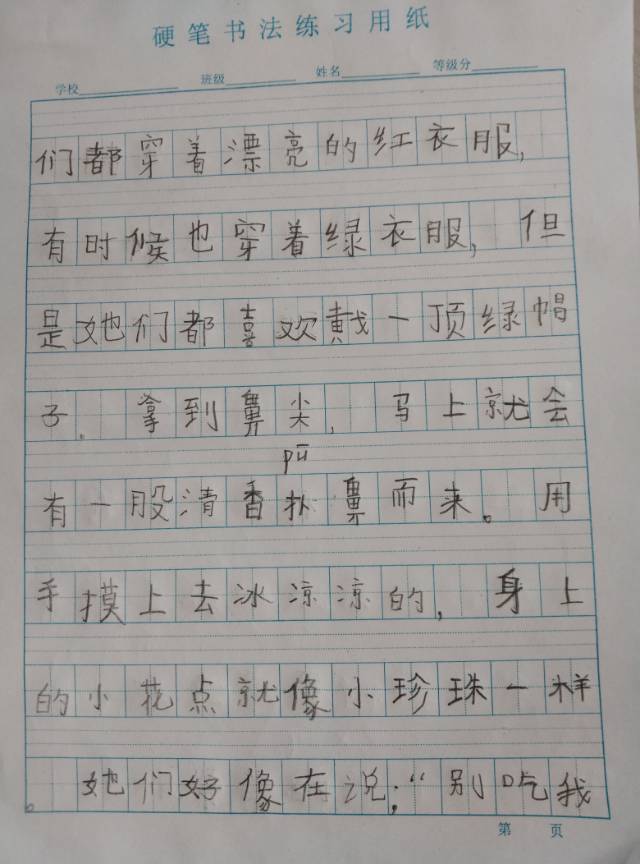 硬笔书法练习用纸
学校 班级 姓名 等级分
们都穿着漂亮的红衣服，
有时候也穿着绿衣服，但
是她们都喜欢戴一顶绿帽
子。拿到鼻尖，马上就会
pū
有一股清香扑鼻而来。用
手摸上去冰凉凉的，身上
的小花点就像小珍珠一样
。她们好像在说：“别吃我
第 页